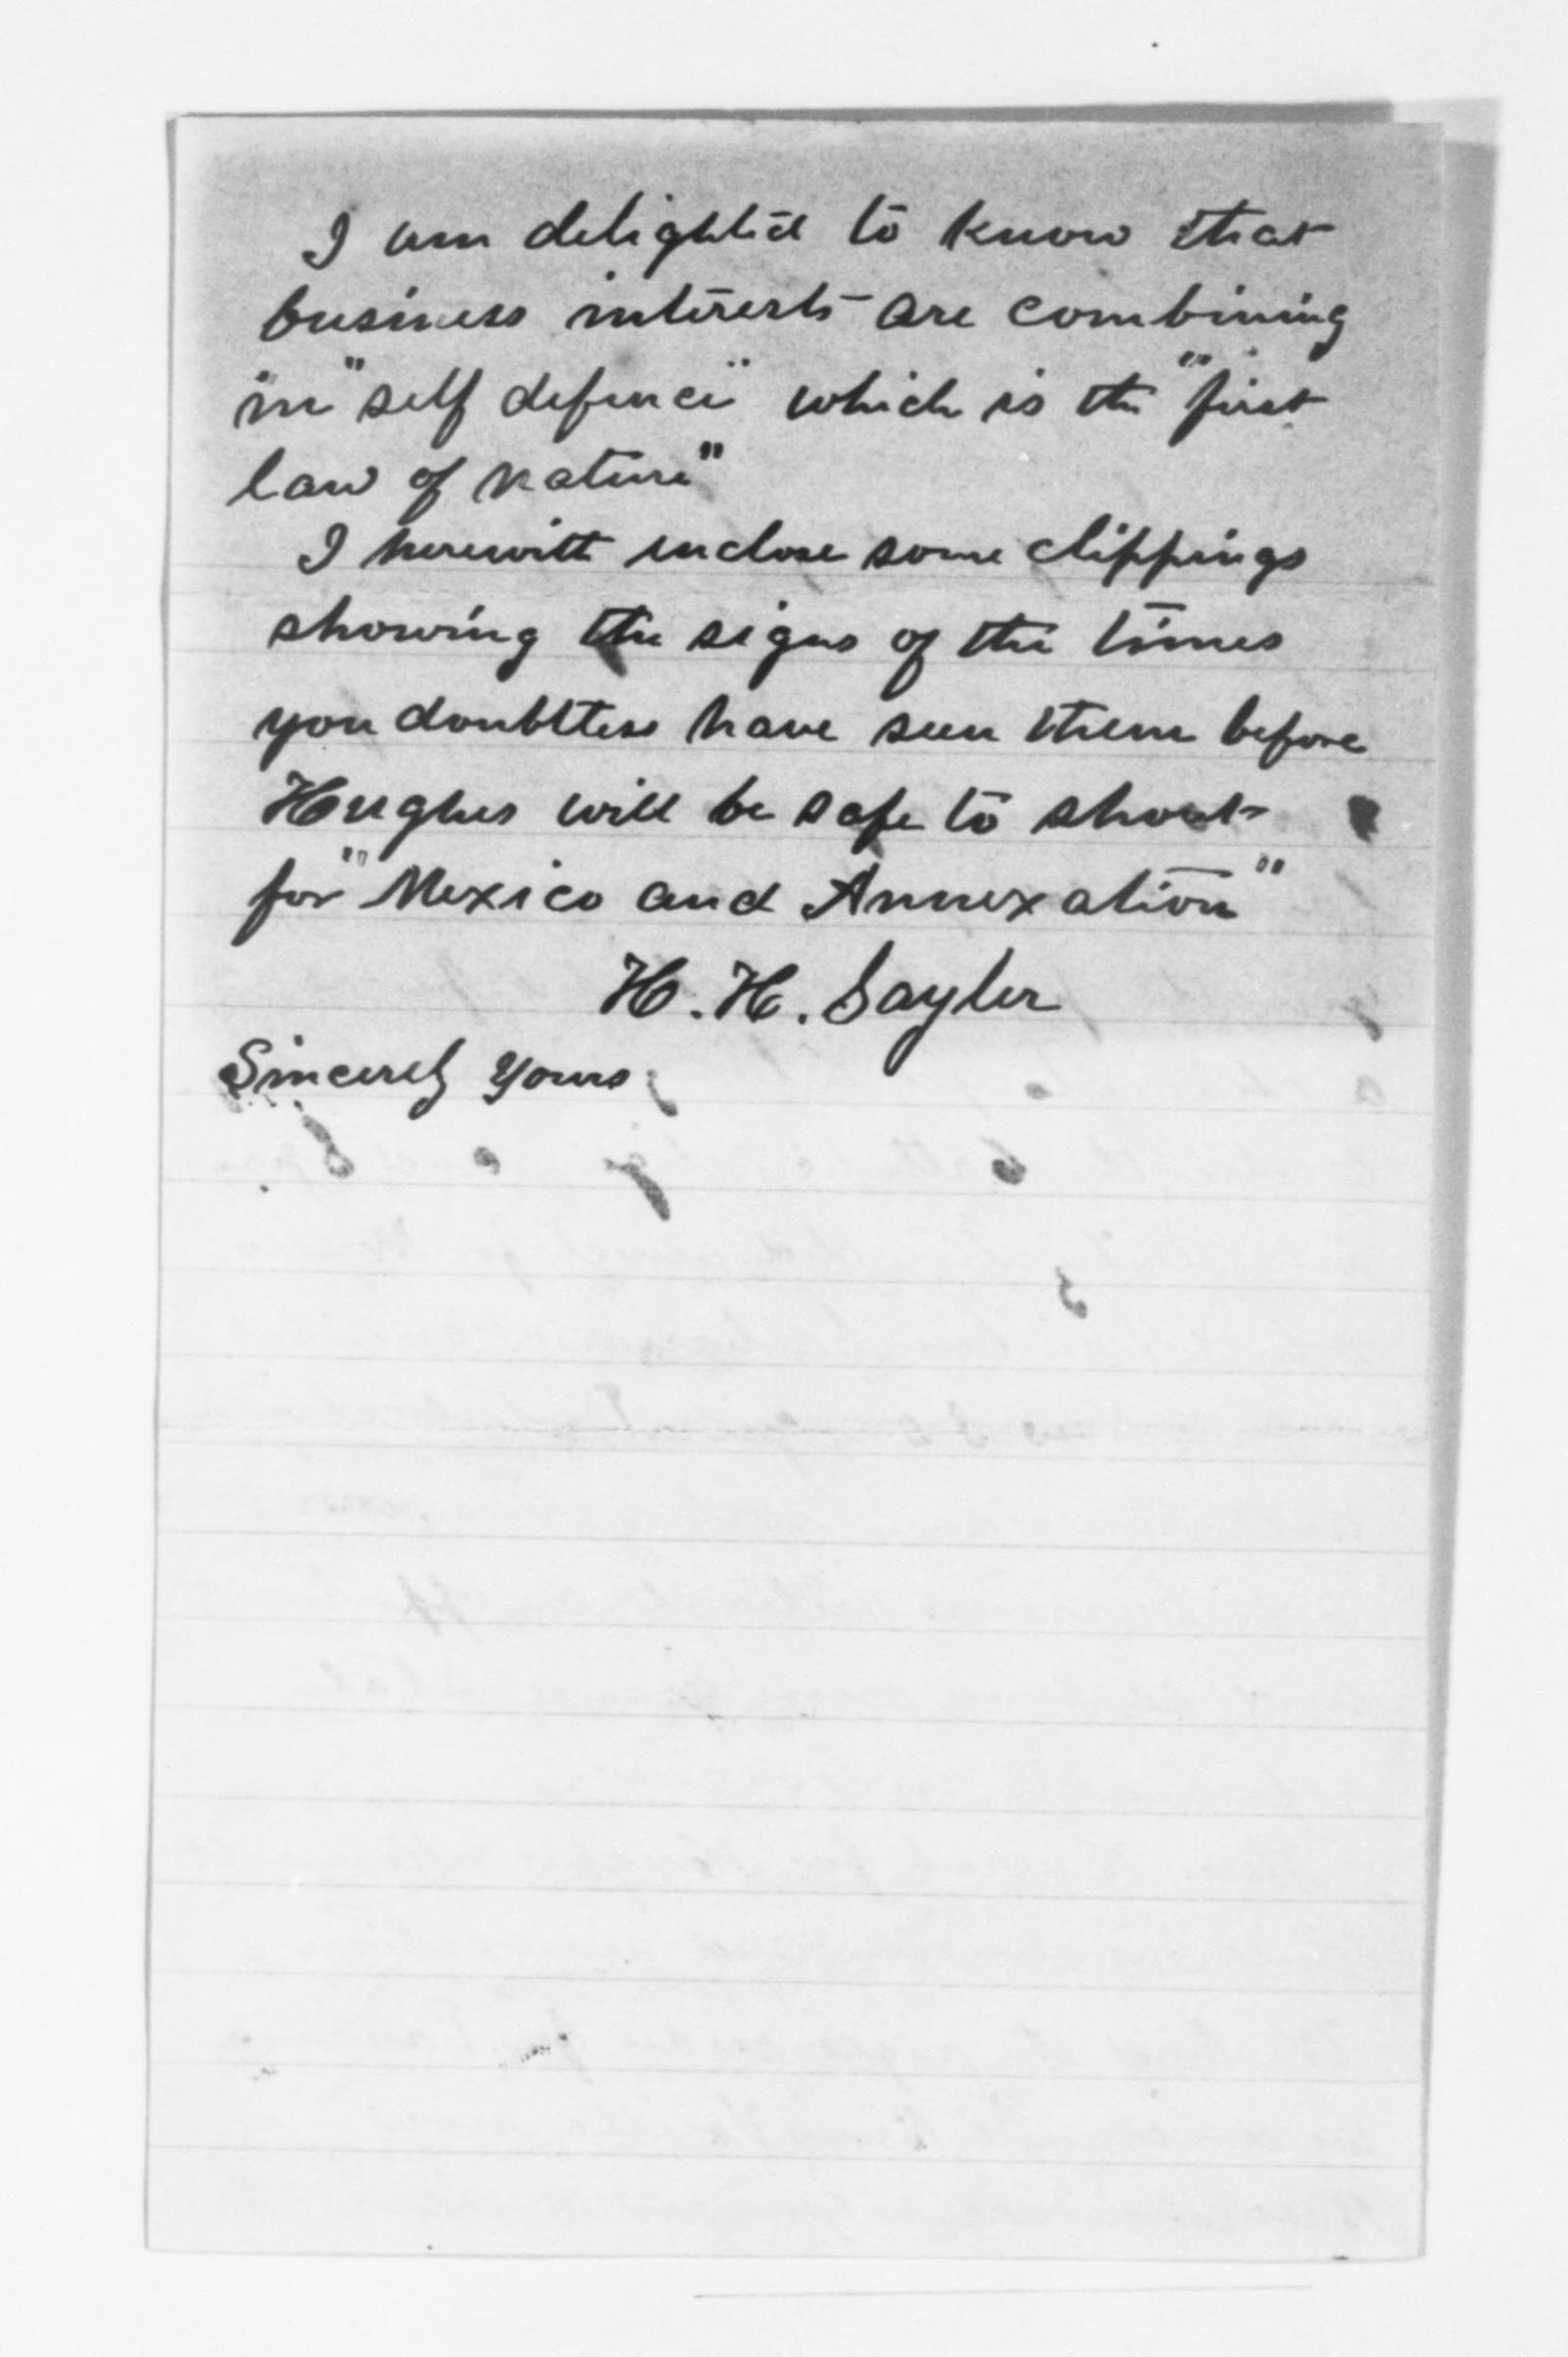 I am delighted to know that
business interests are combining
in "self defence" which is the "first
law of nature"
I herewith inclose some clippings
showing the signs of the times
you doubttess have seen them before
Hughes will be safe to shout
for "Mexico and Annexation"
H. H. Sayler
Sincerely Yours